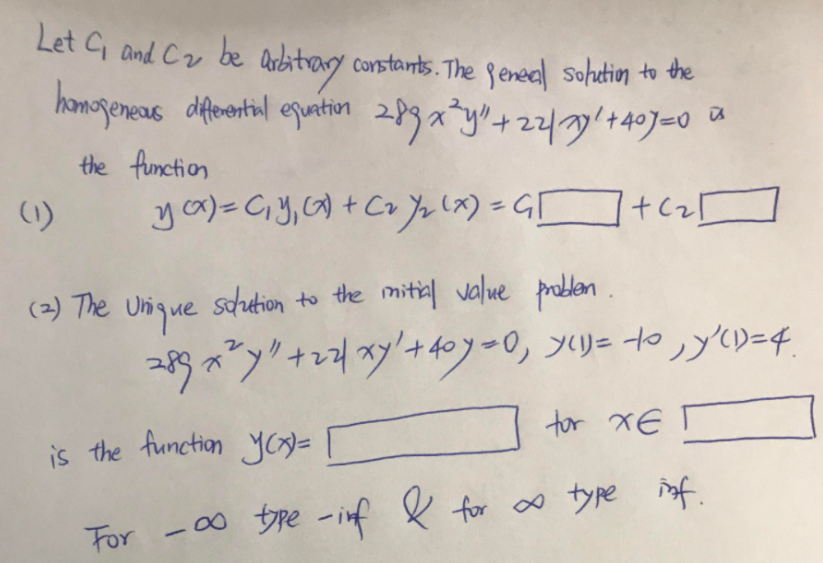 Let C₁ and C₂ be arbitrary constants. The general solution to the
homogeneous differential equation 289 x²y'' + 221 xy' + 40y = 0 is
the function
(1) y(x) = C₁y₁(x) + C₂y₂(x) = C₁ + C₂
(2) The Unique solution to the initial value problem.
289 x²y'' + 221 xy' + 40y = 0, y(1) = -10, y'(1) = 4.
is the function y(x) = for x ∈
For -∞ type -inf & for ∞ type inf.